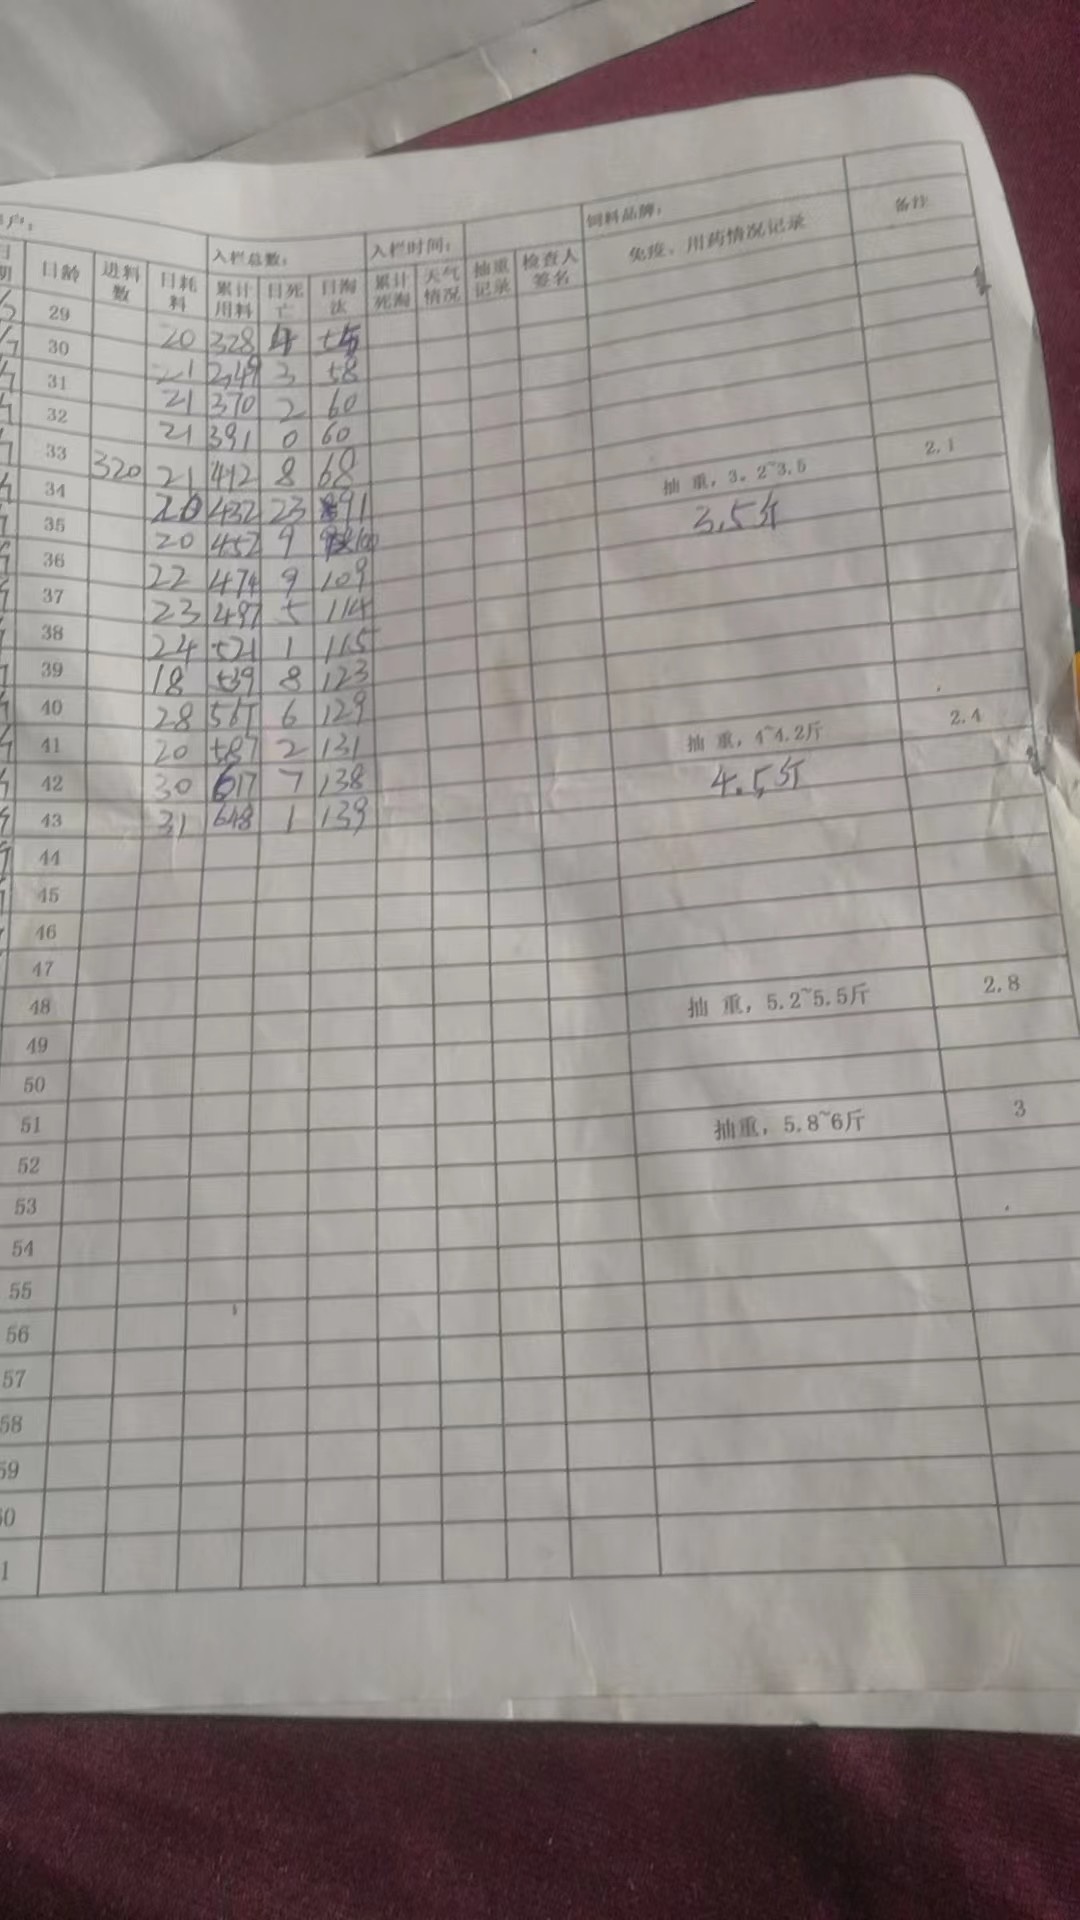 户: 入栏总数: 入栏时间: 饲料品牌:
日龄 进料数 日耗料 累计用料 日死亡 日淘汰 累计死淘 天气情况 抽重记录 检查人签名 免疫、用药情况记录 备注
29 20 328 4 55
30 21 349 3 58
31 21 370 2 60
32 21 391 0 60
33 320 21 412 8 68 抽 重, 3.2~3.5 2.1
34 20 432 23 91 3.5斤
35 20 452 9 100
36 22 474 9 109
37 23 497 5 114
38 24 521 1 115
39 18 539 8 123
40 28 567 6 129 抽 重, 4~4.2斤 2.4
41 20 587 2 131 4.5斤
42 30 617 7 138
43 31 648 1 139
44
45
46
47
48 抽 重, 5.2~5.5斤 2.8
49
50
51 抽重, 5.8~6斤 3
52
53
54
55
56
57
58
59